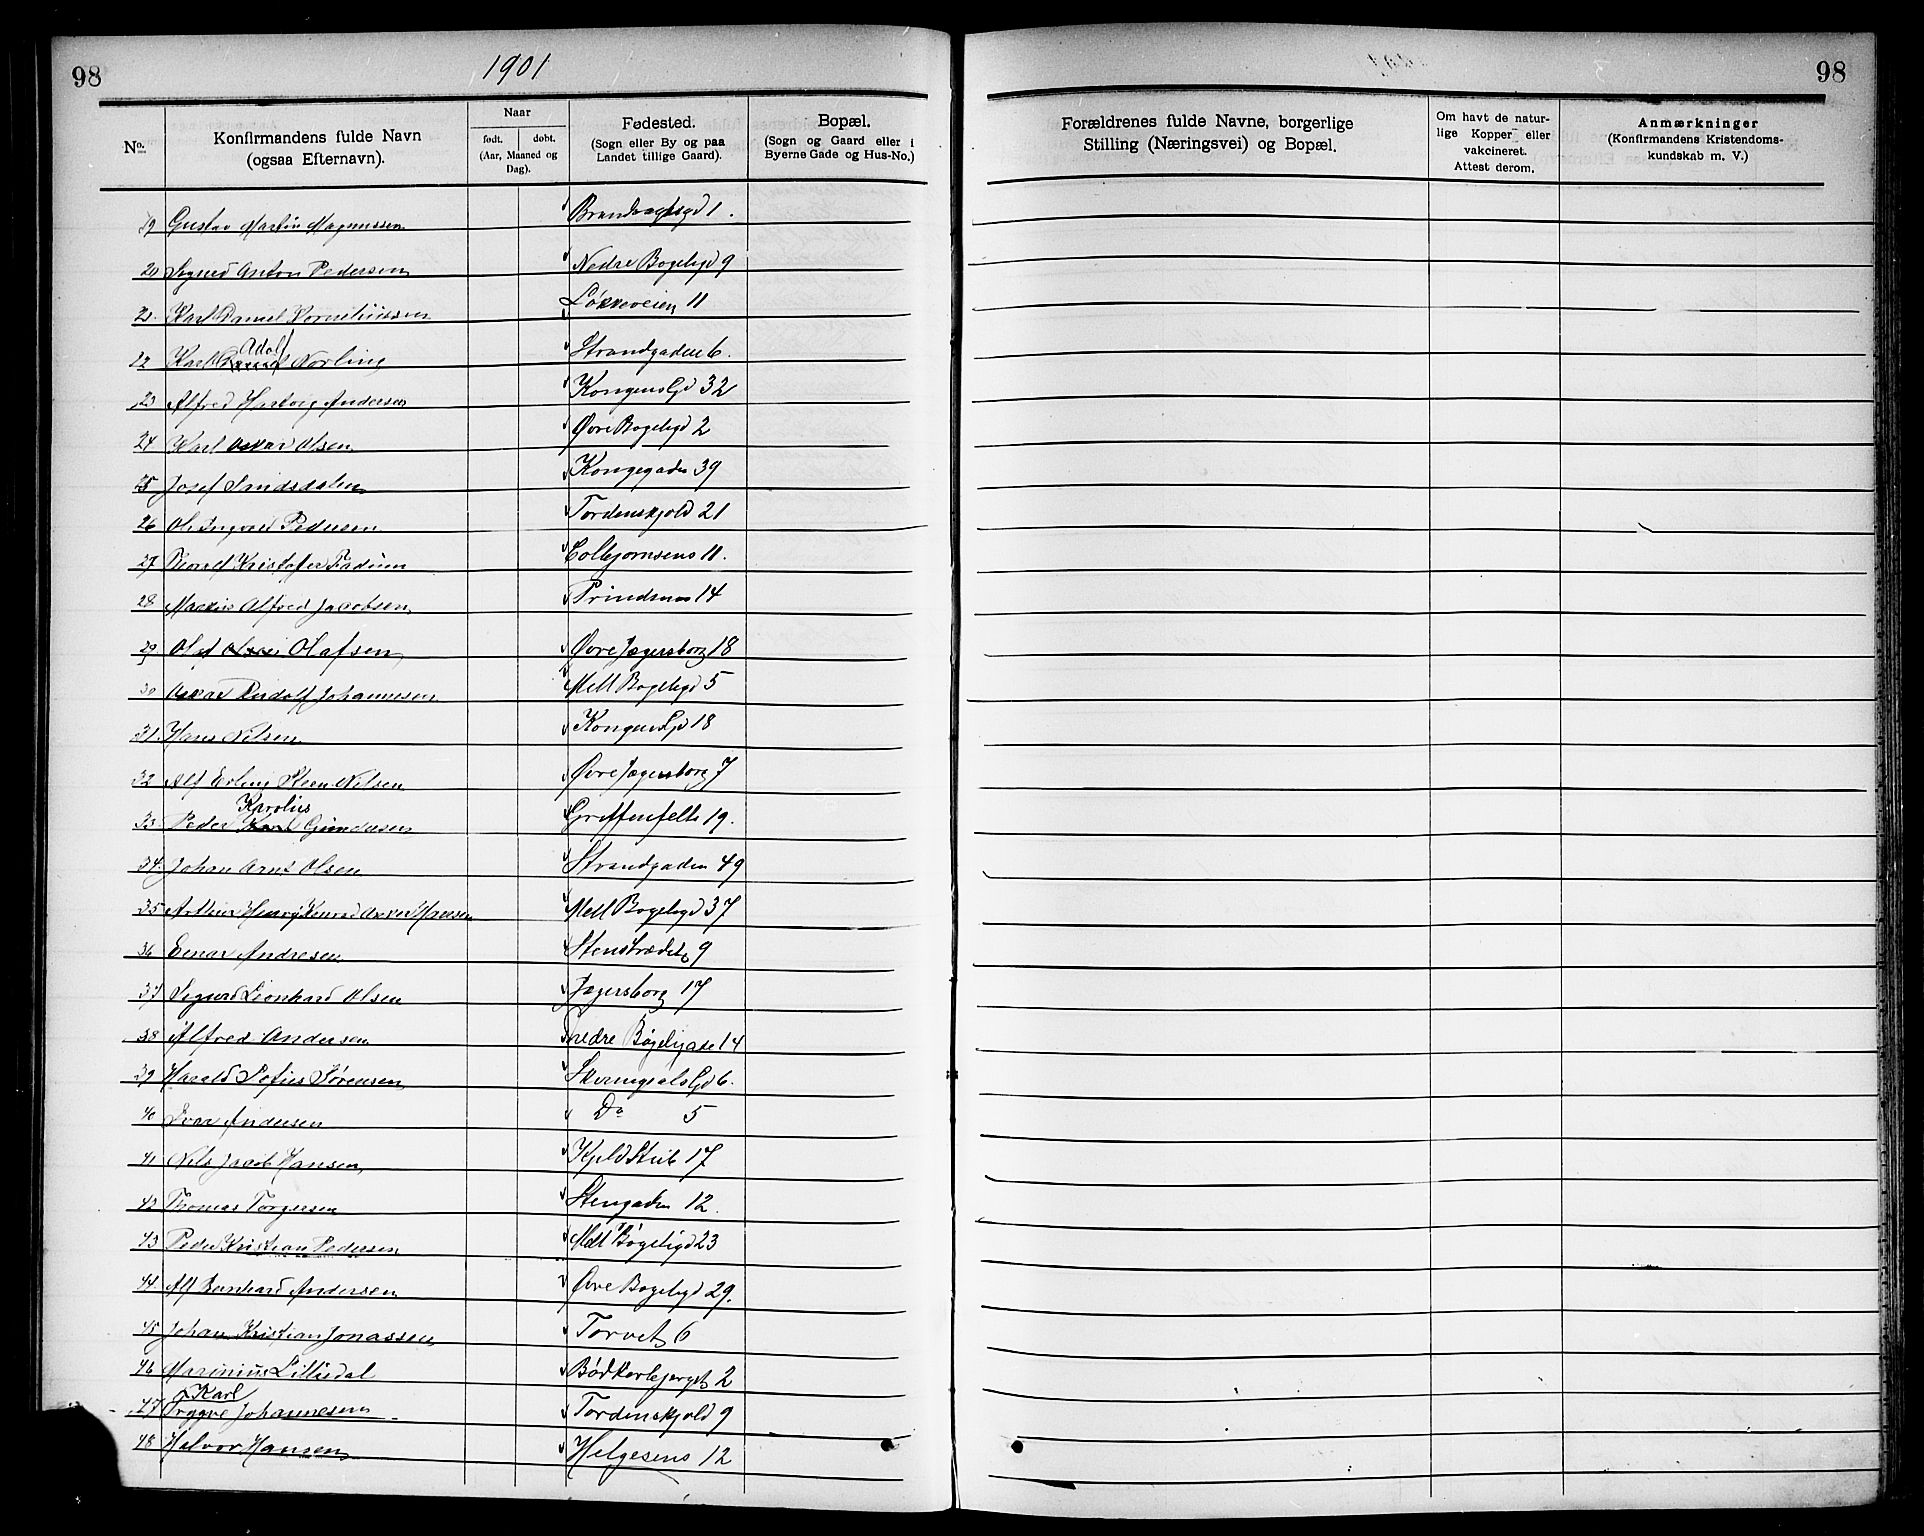 98
1901
No.
Konfirmandens fulde Navn
(ogsaa Efternavn).
Naar
født. døbt.
(Aar, Maaned og
Dag).
Fødested.
(Sogn eller By og paa
Landet tillige Gaard).
Bopæl.
(Sogn og Gaard eller i
Byerne Gade og Hus-No.)
19 Gustav Martin Magnussen Brandvagtsgd 1.
20 Sigurd Anton Pedersen Nedre Bøgeligd 9
21. Karl Daniel Korneliussen Løkkeveien 11
Adolf
22 Karl Norling Strandgaden 6.
23 Alfred Hartvig Andersen Kongensgd 32
24 Karl Oskar Olsen Øvre Bøgeligd 2
25 Josef Sandsdalen Kongegaden 39
26 Ole Ingvald Pedersen Tordenskjold 21
27 Kristofer Fadum Colbjørnsens 11.
28 Markus Alfred Jacobsen Prindsens 14
29 Olaf Olsen Olafsen Øvre Jægersborg 18
30 Oskar Rudolf Johannesen Mell Bøgeligd 5
31. Hans Nilsen Kongensgd 18
32 Alf Erling Steen Nilsen Øvre Jægersborg 7
Karolius
33 Peder Karl Gundersen Griffenfelts 19.
34. Johan Arnt Olsen Strandgaden 49
35 Arthur Henry Konrad Oskar Hansen Mell Bøgeligd 37
36 Einar Andresen Stenstrædet 9
37 Sigurd Leonhard Olsen Jægersborg 17
38 Alfred Andersen nedre Bøgeligade 14
39 Harald Sofus Sørensen Skiringsals Gd 6.
40 Ivar Andersen Do 5
41 Nils Jacob Hansen Kjeld Stub 17
42 Thomas Torgersen Stengaden 12.
43 Peder Kristian Pedersen Mell Bøgeligd 23
44. Alf Bernhard Andersen Øvre Bøgeligd 29.
45 Johan Kristian Jonassen Torvet 6
46 Marinius Lilliedal Bødkerbjerget 2
Karl
47 Trygve Johannesen Tordenskjold 9
48 Halvor Hansen Helgesens 12
98
Forældrenes fulde Navne, borgerlige
Stilling (Næringsvei) og Bopæl.
Om havt de natur-
lige Kopper eller
vakcineret.
Attest derom.
Anmærkninger
(Konfirmandens Kristendoms-
kundskab m. V.)